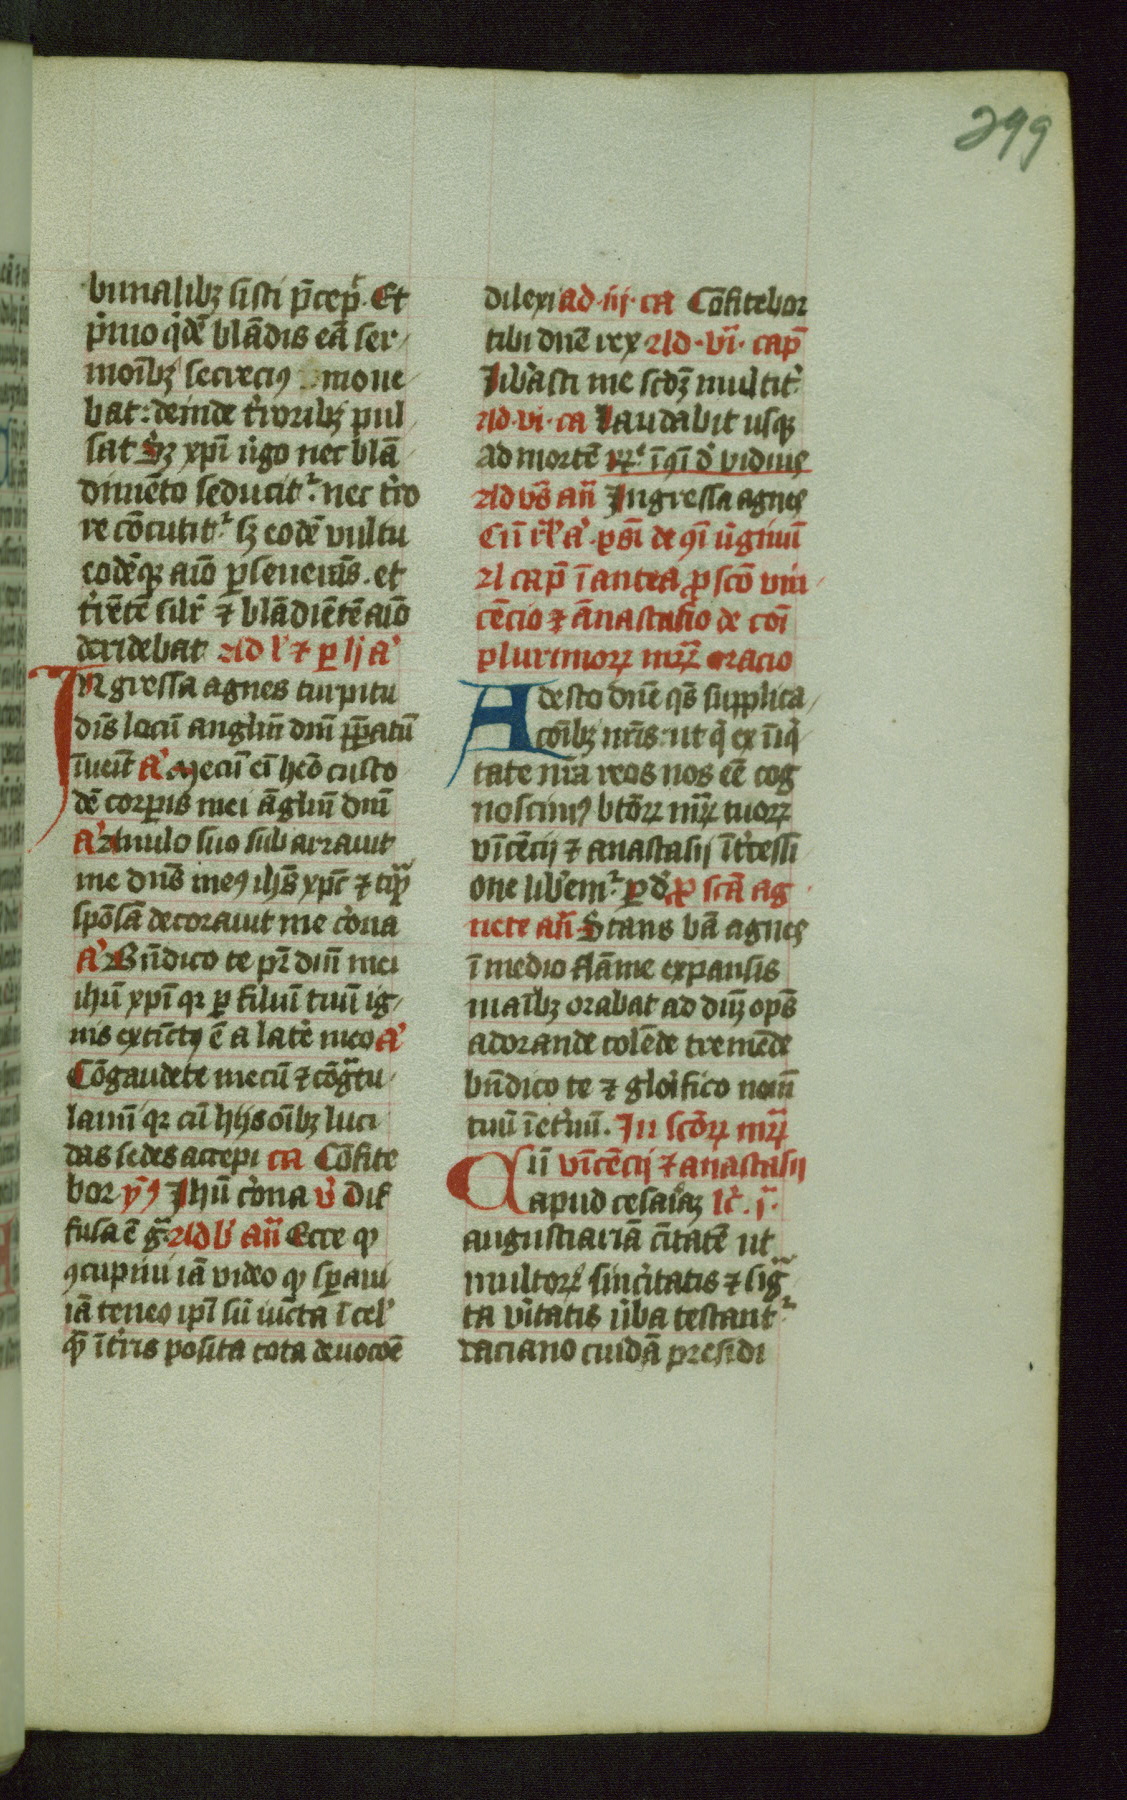 299
bunalibꝫ sisti p̄cep̄. Et
p̄mo q̇dē blādis eā ser
moībꝫ secreciꝰ moue
bat: deinde t̓roribꝫ pul
sat Sꝫ xpī ꝟgo nec blā
dimēto seducit᷑: nec t̓ro
re cōcutit᷑ sꝫ eodē vultu
eodēqꝫ aīo ꝑseuerās. et
t̓rētē silr̄ ⁊ blādiētē aīo
deridebat Ad l᷑ ⁊ ꝑ h᷑ a᷑
Ingressa agnes turpitu
dīs locū anglūm dn̄i p̄patū
īuēit a᷑ Mecū eī hēo custo
dē corꝑis mei āglūm dn̄i
a᷑ Anulo suo subarrauit
me dn̄s meꝰ ihs̄ xpc̄ ⁊ tāqꝫ
spōsā decorauit me c̓ona
a᷑ Bn̄dico te pr̄ dn̄i mei
ihū xpī qꝛ ꝑ filiū tuū ig
nis extīctꝰ ē a lat̓e meo a᷑
Cōgaudete mecū ⁊ cōgᷓtu
lamī qꝛ cū hijs oībꝫ luci
das sedes accepi ca Cōfite
bor ymꝰ Jhū c̓ona v̓ Dif
fusa ē gᷓ Ad b᷑ an̄ Ecce qͦ
ꝯcupiui iā video qͦ sꝑaui
iā teneo ipī sū iūcta ī cel᷑
quē ī t̓ris posita tota deuocōē
dilexi ad .iij. ca Cōfitebor
tibi dn̄e rex Ad .vi. cap̄
Libasti me scd̄ꝫ multit᷑
Ad .vi. ca Laudabit usqꝫ
ad mortē
Ad vs̄ an̄ Ingressa agnes
de ꝯī ꝟginū
Al cap̄ ī antea ꝓ scō vin
cēcio ⁊ ānastasio de cōi
plurimoꝝ mr̄ꝝ oracio
Adesto dn̄e qs̄ supplica
cōībꝫ nr̄is: ut q̇ ex īiq̇
tate nr̄a reos nos eē cog
noscimꝰ btōꝝ mr̄ꝝ tuoꝝ
vīcēcij ⁊ anastasij īt̓cessi
one lib̓em᷑ ꝑ d᷑ ꝓ scā ag
nete an̄ Stans bā agnes
ī medio flāme expansis
maībꝫ orabat ad dn̄ꝫ op̄s
adorande colēde tremēde
bn̄dico te ⁊ glōifico nom̄
tuū īet̓nū. In scōꝝ mr̄ꝝ
Cū vīcēcij ⁊ anastasij
apud cesaꝛᷓꝫ lc̄. j᷑
augustiariā c̄itatē ut
multoꝝ sinc̓itatis ⁊ sigᷓ
ta v̓itatis ꝟba testant᷑
daciano cuidā presidi